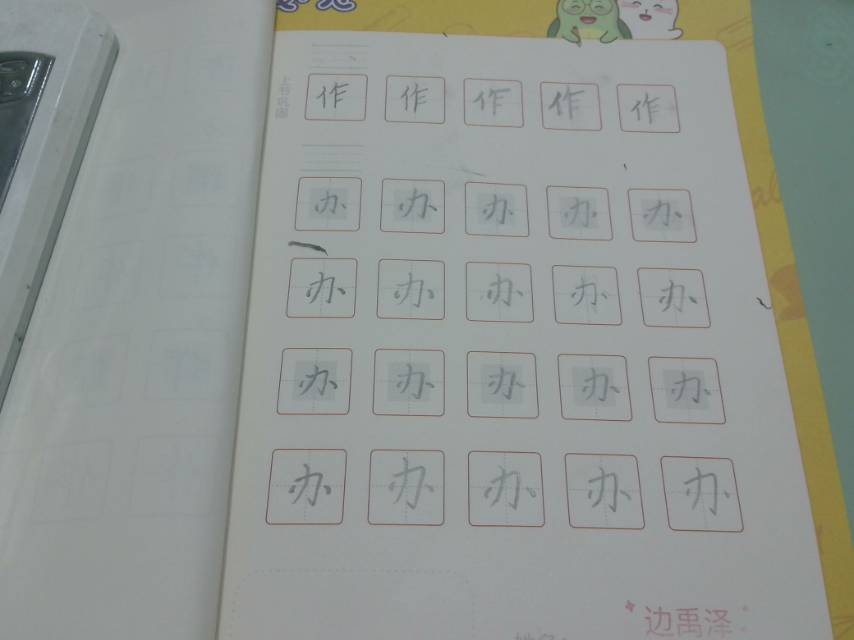 作 作 作 作 作
办 办 办 办 办
办 办 办 办 办
办 办 办 办 办
办 办 办 办 办
边禹泽